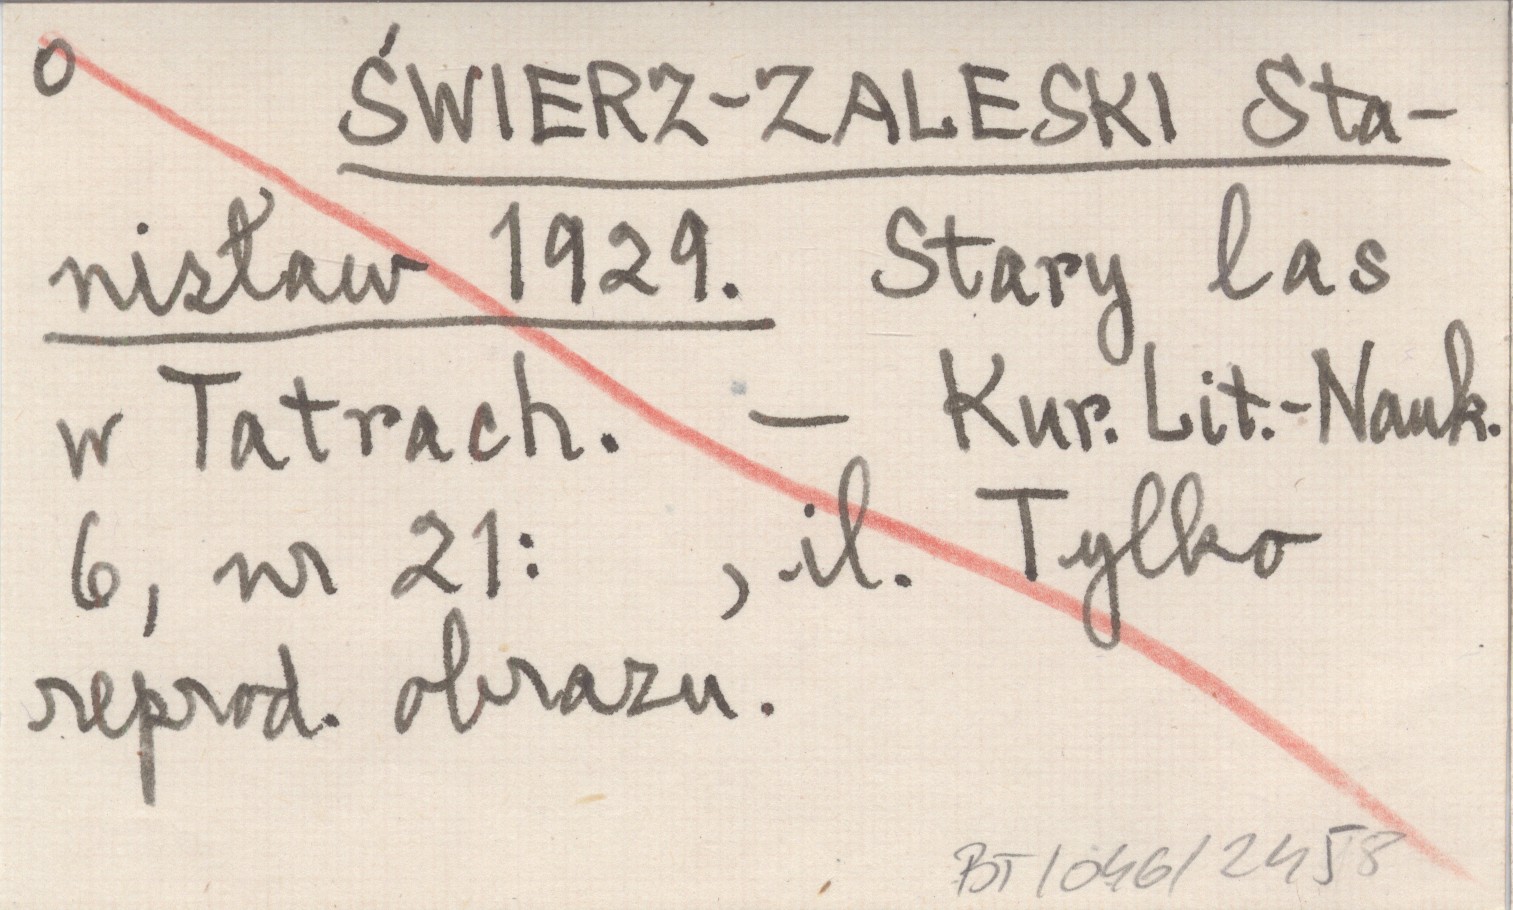 o ŚWIERZ-ZALESKI Sta-
nisław 1929. Stary las
w Tatrach. — Kur. Lit.-Nauk.
6, nr 21: , il. Tylko
reprod. obrazu.
BT/046/2458